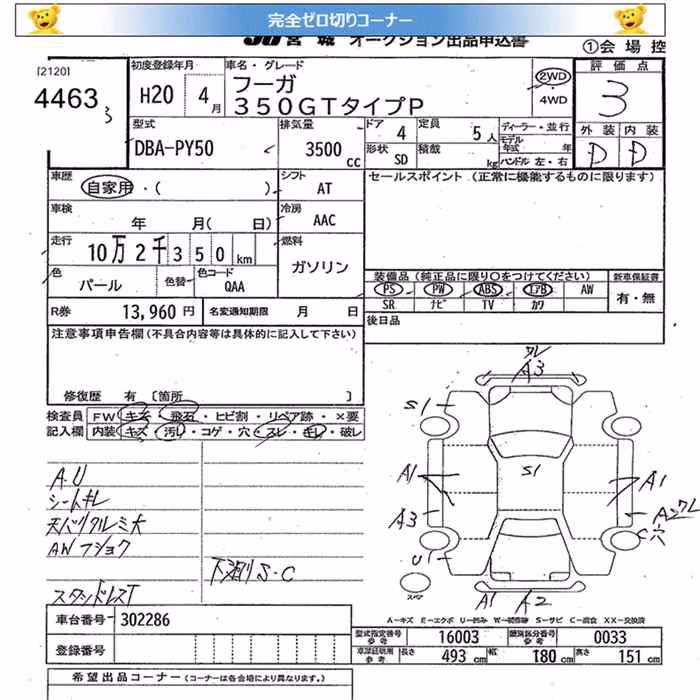 完全ゼロ切りコーナー
JU 宮城 オークション出品申込書
①会場控
[2120]
4463 3
初度登録年月
H20 4月
車名・グレード
フーガ
350GTタイプP
2WD
4WD
評価点
3
外装 内装
D D
型式
DBA-PY50
排気量
3500 cc
ドア 4
定員 5人
形状 SD
積載 kg
ディーラー・並行
モデル年式 年
ハンドル 左・右
車歴
自家用・( )
シフト AT
セールスポイント (正常に機能するものに限ります)
車検
年 月( 日)
冷房 AAC
走行
10万2千350km
燃料
ガソリン
色
パール
色替
色コード
QAA
装備品 (純正品に限り○をつけてください)
PS PW ABS エアB AW
SR ナビ TV カワ
新車保証書
有・無
R券 13,960円
名変通知期限 月 日
後日品
注意事項申告欄 (不具合内容等は具体的に記入して下さい)
修復歴 有 [箇所 ]
検査員 FW キズ・飛石・ヒビ割・リペア跡・×要
記入欄 内装 キズ・汚レ・コゲ・穴・スレ・キレ・破レ
A.U
シートキレ
天バリタルミ大
AWフショク
スタッドレスT
下廻りS・C
ワレ
A3
S1
A1
S1
A1
A3
Aワレ
C穴
U1
スペア
A1 A2
A-キズ E-エクボ U-凹み W-補修跡 S-サビ C-腐食 XX-交換済
車台番号 302286
登録番号
型式指定番号 参考 16003
類別区分番号 参考 0033
車庫証明用 参考 長さ 493 cm 幅 180 cm 高さ 151 cm
希望出品コーナー (コーナーは各会場により異なります。)